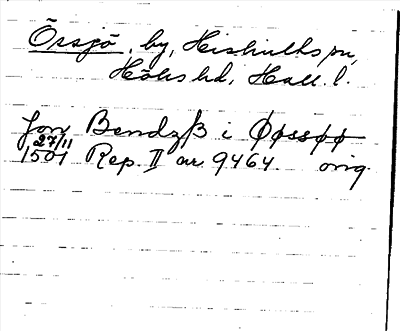 Örsjö, by, Hishults sn,
Höks hd, Hall. l.
Jon Bendzß i Øøssøø
27/11
1501 Rep. II nr 9464 orig.